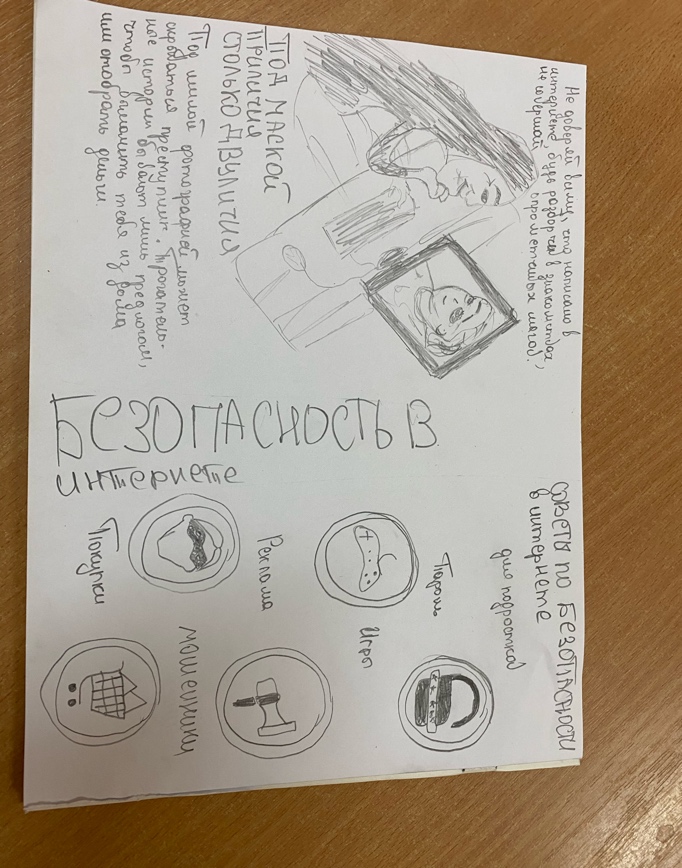 Не доверяй всему, что написано в
интернете будь разборчив в знакомствах,
не совершай опрометчивых шагов!
ПОД МАСКОЙ
ПРИЛИЧИЯ
СТОЛЬКО ДВУЛИЧИЯ
Под милой фотографией может
скрываться преступник. Трогатель-
ные истории бывают лишь предлогом,
чтобы выманить тебя из дома
или отобрать деньги.
БЕЗОПАСНОСТЬ В
интернете
СОВЕТЫ ПО БЕЗОПАСНОСТИ
в интернете
для подростка
Пароль
Игры
Реклама
мошенники
Покупки